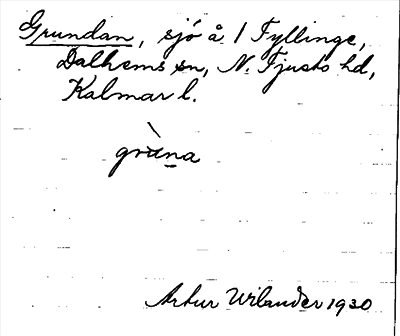 Grundan, sjö å 1 Fyllinge,
Dalhems sn, N. Tjusts hd,
Kalmar l.
gru̇̀na
Artur Wilander 1930